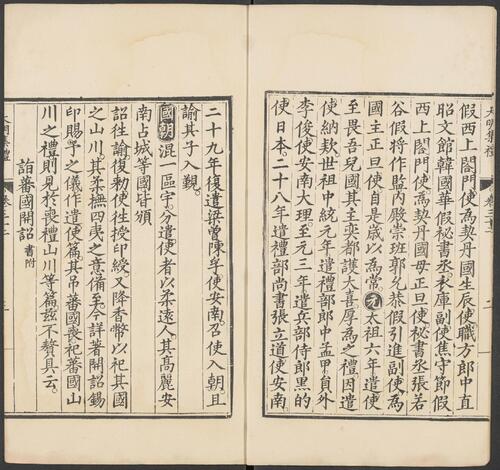 假西上閤門使為契丹國生辰使職方郎中直
昭文館韓國華假秘書丞衣庫副使焦守節假
西上閤門使為契丹國母正旦使秘書丞張若
谷假將作監內殿崇班郭允恭假引進副使為
國主正旦使自是歲以為常元太祖六年遣使
至畏吾兒國其主奕都護大喜厚為之禮因遣
使納欵世祖中統元年遣禮部郎中孟甲貟外
李俊使安南大理至元三年遣兵部侍郎黑的
使日本二十八年遣禮部尚書張立道使安南
二十九年復遣梁曾陳孚使安南召使入朝且
諭其子入覲
國朝混一區宇分遣使者以柔遠人其高麗安
南占城等國皆頒
詔往諭復勑使往授印綬又降香幣以祀其國
之山川其柔撫四夷之意備至今詳著開詔錫
印賜予之儀作遣使篇其弔蕃國喪祀蕃國山
川之禮則見於喪禮山川等篇兹不贅具云
詣蕃國開詔 書附